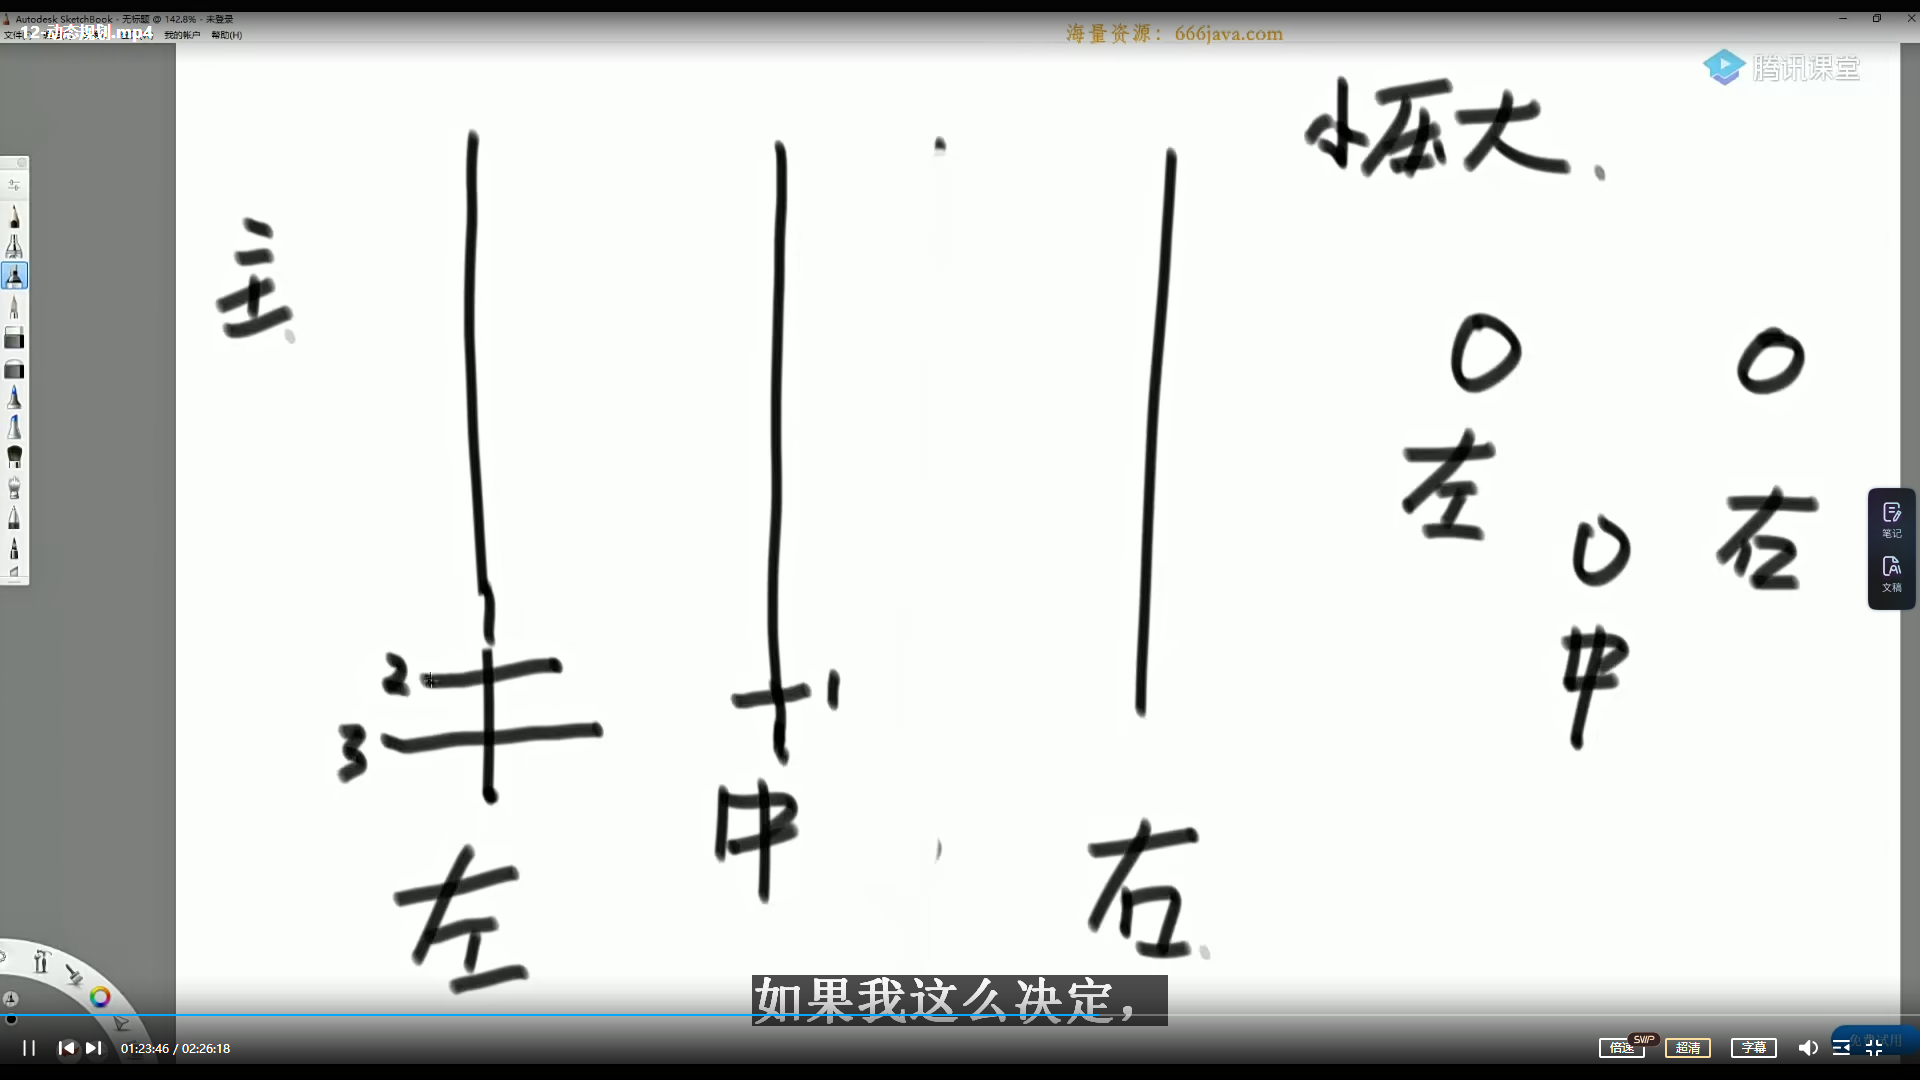 Autodesk SketchBook - 无标题 @ 142.8% - 未登录
12.动态规划.mp4
我的帐户 帮助(H)
海量资源：666java.com
腾讯课堂
小压大
主
0 0
左 右
0
中
2
1
3
中
左
右
笔记
文稿
如果我这么决定，
01:23:46 / 02:26:18
倍速 SWP 超清 字幕
免费试用